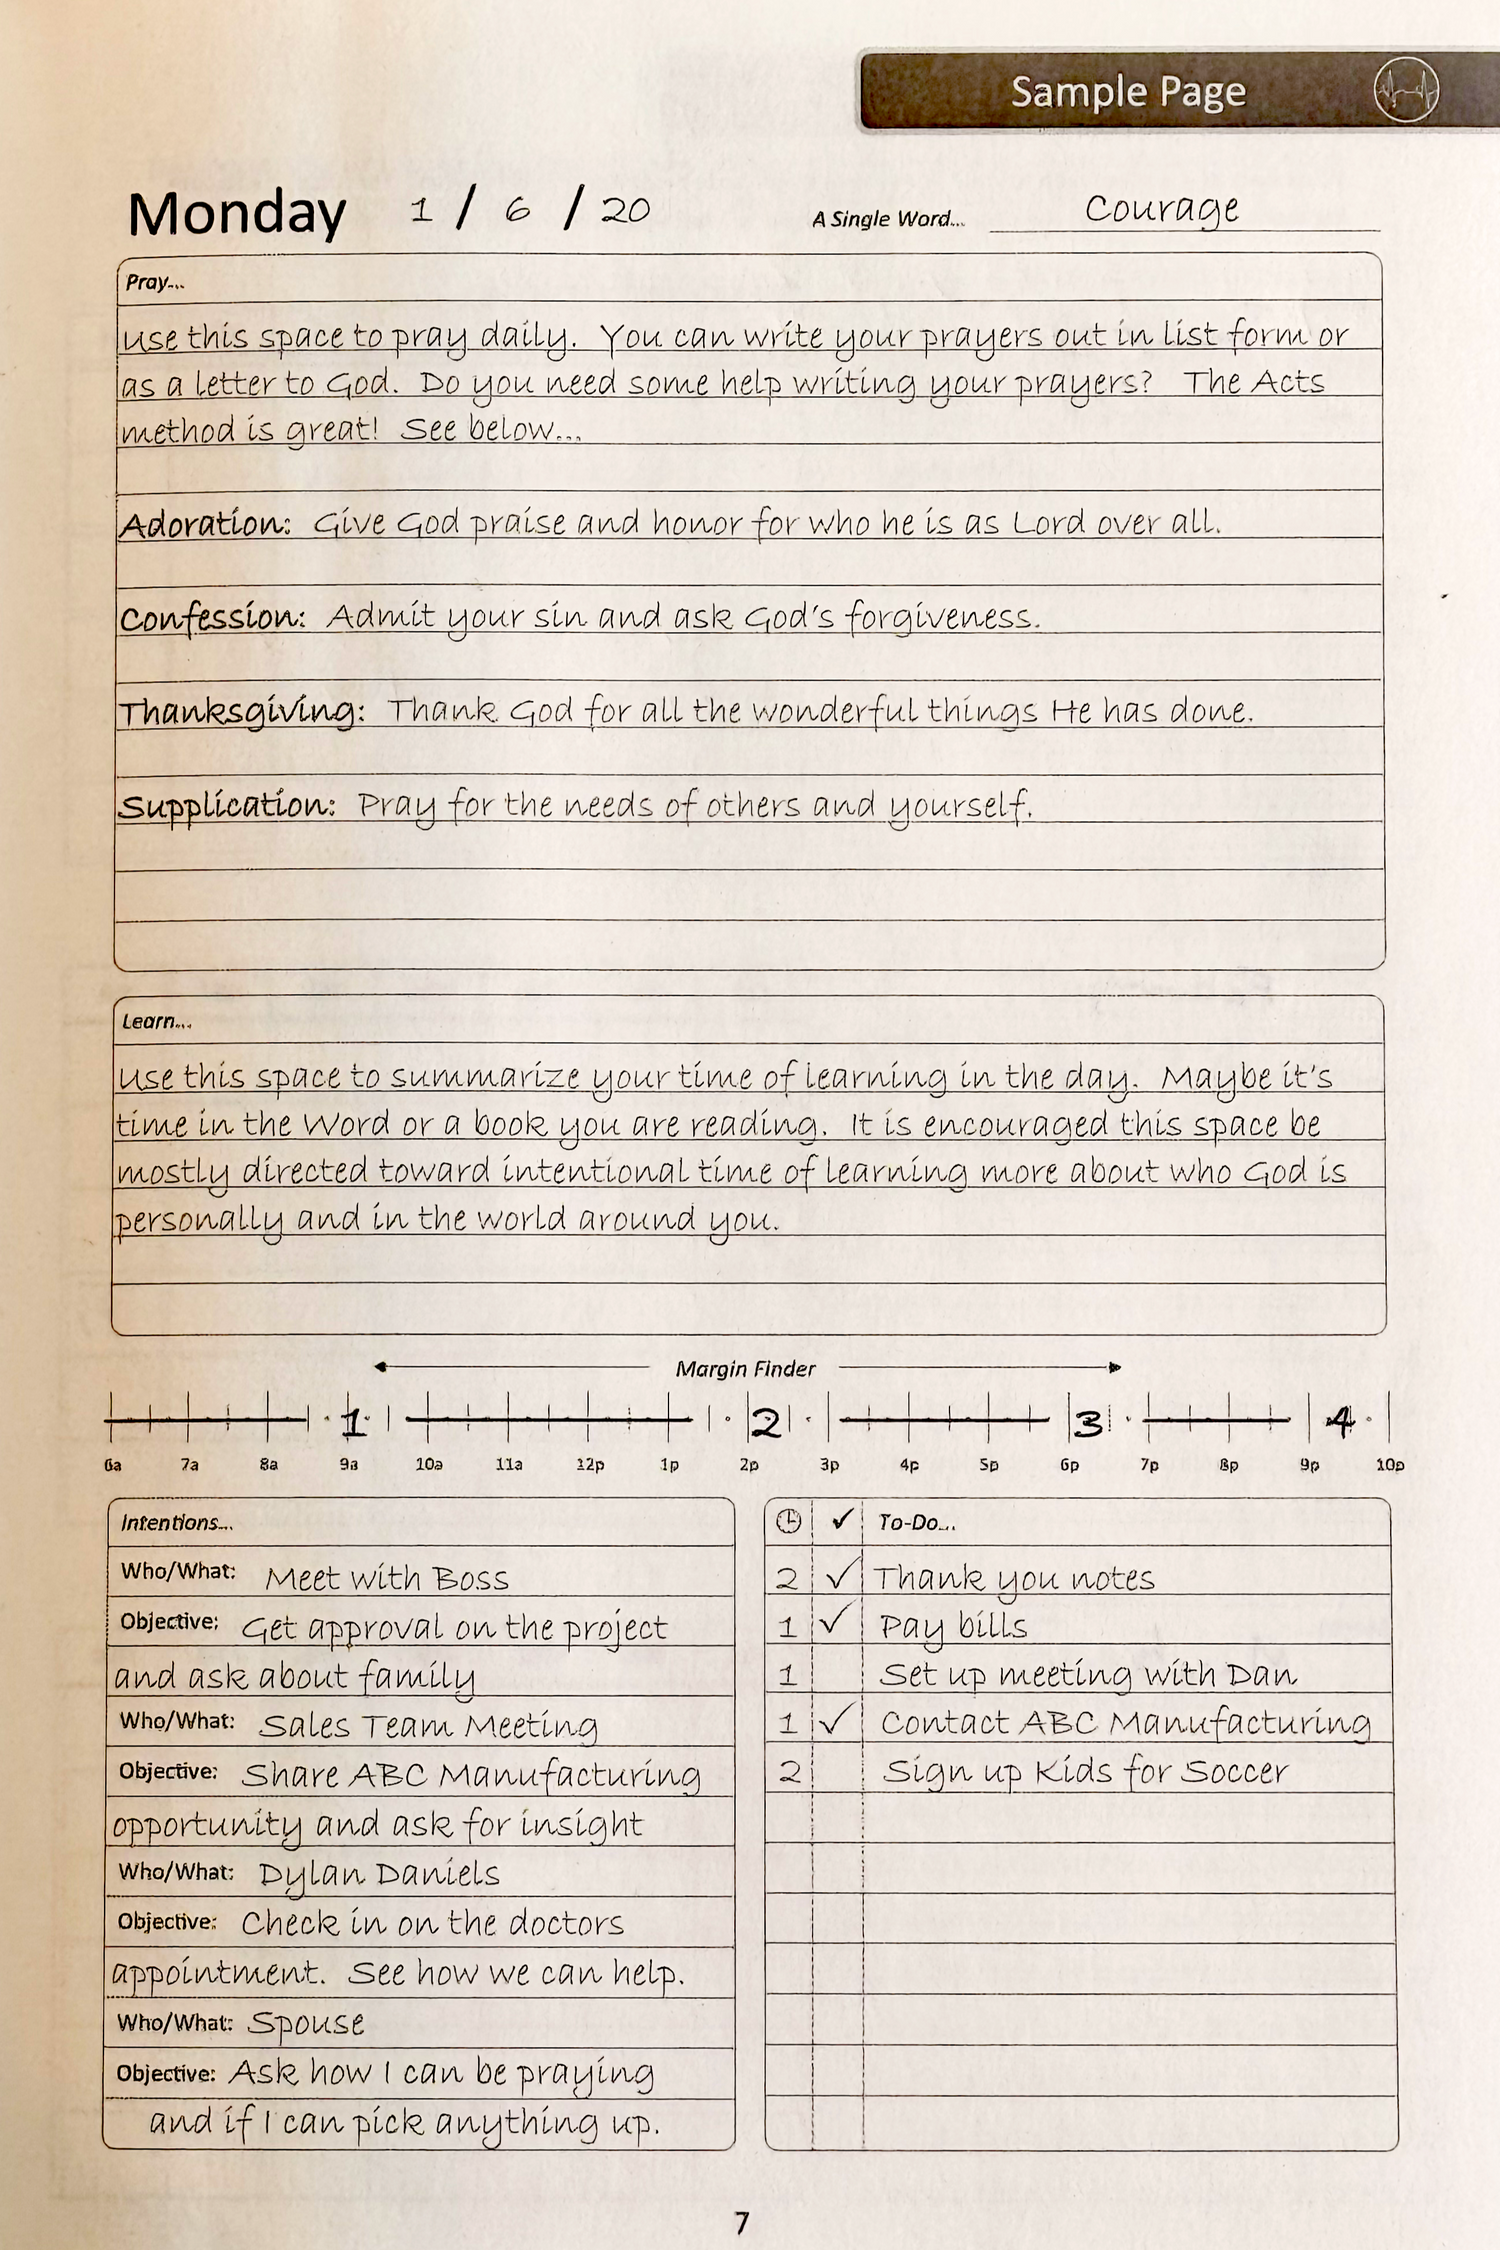 Sample Page
Monday 1 / 6 / 20 A Single Word... Courage
Pray...
Use this space to pray daily. You can write your prayers out in list form or
as a letter to God. Do you need some help writing your prayers? The Acts
method is great! See below...
Adoration: Give God praise and honor for who he is as Lord over all.
Confession: Admit your sin and ask God's forgiveness.
Thanksgiving: Thank God for all the wonderful things He has done.
Supplication: Pray for the needs of others and yourself.
Learn...
Use this space to summarize your time of learning in the day. Maybe it's
time in the Word or a book you are reading. It is encouraged this space be
mostly directed toward intentional time of learning more about who God is
personally and in the world around you.
Margin Finder
1 2 3 4
6a 7a 8a 9a 10a 11a 12p 1p 2p 3p 4p 5p 6p 7p 8p 9p 10p
Intentions...
Who/What: Meet with Boss
Objective: Get approval on the project
and ask about family
Who/What: Sales Team Meeting
Objective: Share ABC Manufacturing
opportunity and ask for insight
Who/What: Dylan Daniels
Objective: Check in on the doctors
appointment. See how we can help.
Who/What: Spouse
Objective: Ask how I can be praying
and if I can pick anything up.
✓ To-Do...
2 ✓ Thank you notes
1 ✓ Pay bills
1 Set up meeting with Dan
1 ✓ Contact ABC Manufacturing
2 Sign up Kids for Soccer
7